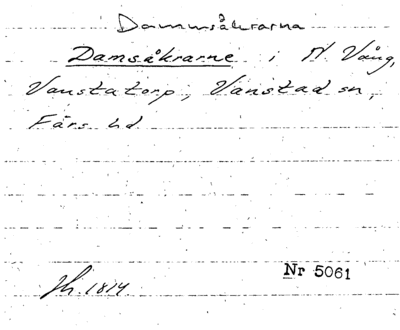 Dammsåkrarna
Damsåkrarne i N Vång,
Vanstatorp, Vanstad sn,
Färs hd
Jh. 1814
Nr 5061